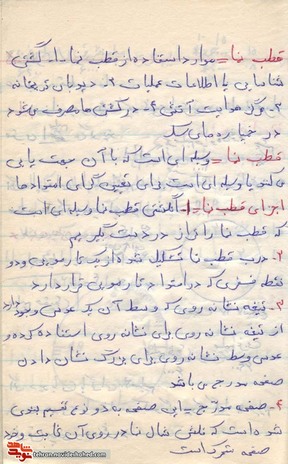 قطب نما= موارد استفاده از قطب نما - ۱- گشتی
شناسایی یا اطلاعات عملیات ۲- دیدبان توپخانه
۳- و هدایت آتش ۴- در کشتی ها مصرف می شود
در خمپاره های
قطب نما= وسیله ای است که با آن جهت یابی
می کنیم یا وسیله ای است برای تعیین گرای امتدادها
اجزای قطب نما= ۱- انگشتی قطب نما وسیله ای است
که قطب نما را از در دست بگیریم
۲- درب قطب نما تشکیل شده از یک تار مویی و دو
نقطه فسفری که در امتداد تار مویی قرار دارد
۳- تیغه نشانه روی که وسط آن یک عدسی وجود دارد
از تیغه نشانه روی برای نشانه روی استفاده کرده و
عدسی وسط نشانه روی برای بزرگ نشان دادن
صفحه مدرج می باشد
۴- صفحه مدرج - این صفحه به دو نوع تقسیم بندی
شده است که فلش شمال نما در روی آن ثابت وجود
صفحه متحرک است
tehran.navideshahed.com